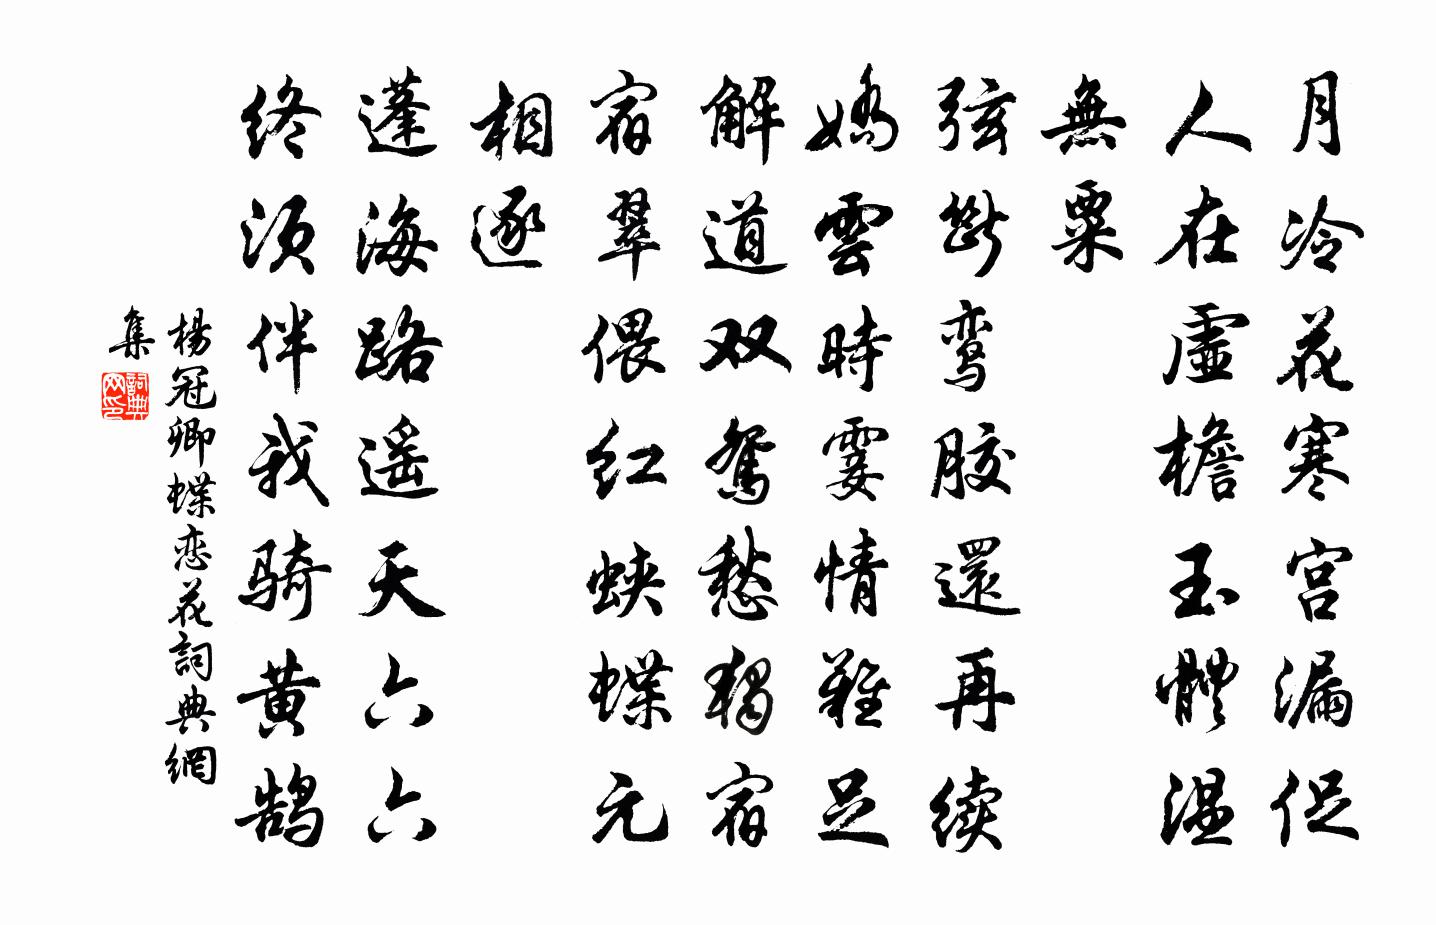 月冷花寒宫漏促
人在虚檐玉體温
無粟
弦斷鸾胶還再续
娇雲時霎情難足
解道双鸳愁独宿
宿翠偎红蛱蝶元
相逐
蓬海路遥天六六
终须伴我骑黄鹄
楊冠卿蝶恋花詞典網
集
詞典
网印